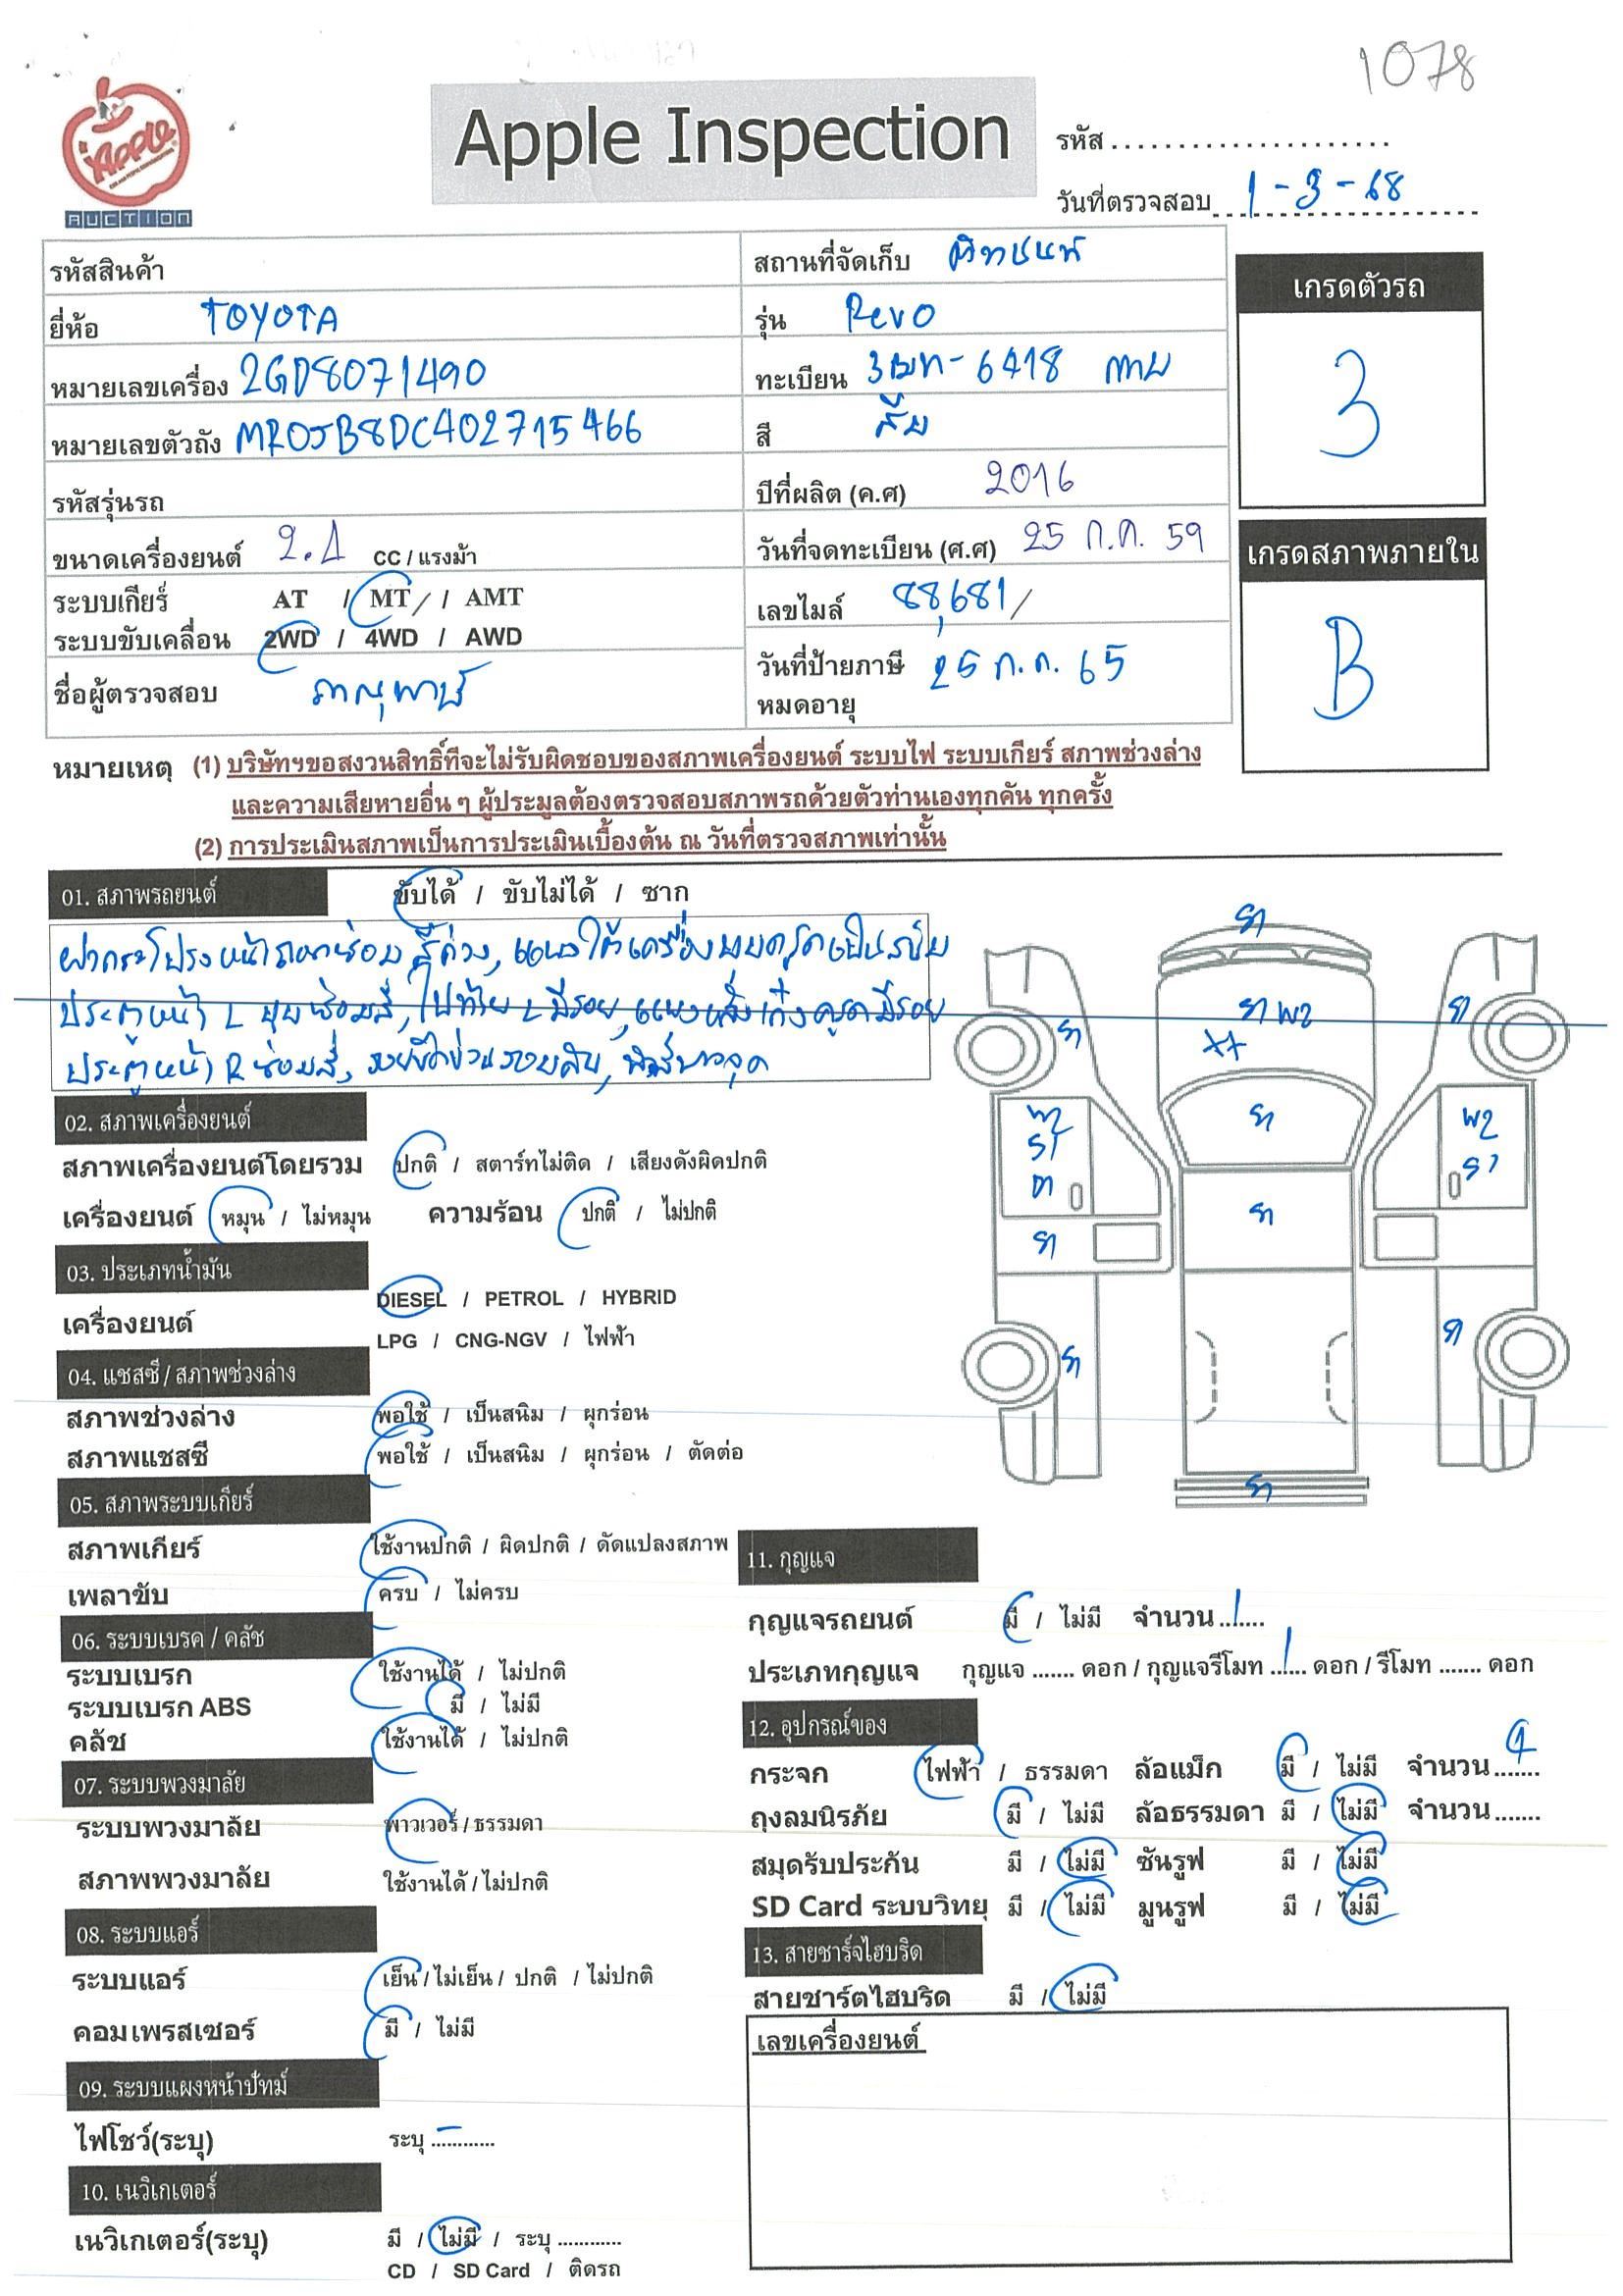 1078
Apple
AUCTION
Apple Inspection
รหัส .....................
วันที่ตรวจสอบ 1-3-68
รหัสสินค้า
สถานที่จัดเก็บ
ยี่ห้อ TOYOTA
รุ่น Revo
หมายเลขเครื่อง 2GD8071490
ทะเบียน 3ฒท-6418 กทม
หมายเลขตัวถัง MR05B8DC402715466
สี ส้ม
รหัสรุ่นรถ
ปีที่ผลิต (ค.ศ) 2016
ขนาดเครื่องยนต์ 2.4 CC / แรงม้า
วันที่จดทะเบียน (ศ.ศ) 25 ก.ค. 59
ระบบเกียร์ AT / MT / AMT
เลขไมล์ 88,681/
ระบบขับเคลื่อน 2WD / 4WD / AWD
วันที่ป้ายภาษี 25 ก.ค. 65
หมดอายุ
ชื่อผู้ตรวจสอบ
เกรดตัวรถ
3
เกรดสภาพภายใน
B
หมายเหตุ (1) บริษัทฯขอสงวนสิทธิ์ที่จะไม่รับผิดชอบของสภาพเครื่องยนต์ ระบบไฟ ระบบเกียร์ สภาพช่วงล่าง
และความเสียหายอื่น ๆ ผู้ประมูลต้องตรวจสอบสภาพรถด้วยตัวท่านเองทุกคัน ทุกครั้ง
(2) การประเมินสภาพเป็นการประเมินเบื้องต้น ณ วันที่ตรวจสภาพเท่านั้น
01. สภาพรถยนต์ ขับได้ / ขับไม่ได้ / ซาก
ฝากระโปรงหน้าถอดซ่อม สีด่าง,
ประตูหน้า L บุบซ่อมสี, ไฟท้าย L มีรอย,
ประตูหน้า R ซ่อมสี, รอยขีดข่วนรอบคัน,
02. สภาพเครื่องยนต์
สภาพเครื่องยนต์โดยรวม ปกติ / สตาร์ทไม่ติด / เสียงดังผิดปกติ
เครื่องยนต์ หมุน / ไม่หมุน ความร้อน ปกติ / ไม่ปกติ
03. ประเภทน้ำมัน
เครื่องยนต์ DIESEL / PETROL / HYBRID
LPG / CNG-NGV / ไฟฟ้า
04. แชสซี / สภาพช่วงล่าง
สภาพช่วงล่าง พอใช้ / เป็นสนิม / ผุกร่อน
สภาพแชสซี พอใช้ / เป็นสนิม / ผุกร่อน / ตัดต่อ
05. สภาพระบบเกียร์
สภาพเกียร์ ใช้งานปกติ / ผิดปกติ / ดัดแปลงสภาพ
เพลาขับ ครบ / ไม่ครบ
06. ระบบเบรค / คลัช
ระบบเบรก ใช้งานได้ / ไม่ปกติ
ระบบเบรก ABS มี / ไม่มี
คลัช ใช้งานได้ / ไม่ปกติ
07. ระบบพวงมาลัย
ระบบพวงมาลัย พาวเวอร์ / ธรรมดา
สภาพพวงมาลัย ใช้งานได้ / ไม่ปกติ
08. ระบบแอร์
ระบบแอร์ เย็น / ไม่เย็น / ปกติ / ไม่ปกติ
คอมเพรสเซอร์ มี / ไม่มี
09. ระบบแผงหน้าปัทม์
ไฟโชว์(ระบุ) ระบุ ............
10. เนวิเกเตอร์
เนวิเกเตอร์(ระบุ) มี / ไม่มี / ระบุ ............
CD / SD Card / ติดรถ
รก
รก W2
XX
รก
รก
รก
รก
W2
W2
รก
รก
รก
รก
11. กุญแจ
กุญแจรถยนต์ มี / ไม่มี จำนวน 1
ประเภทกุญแจ กุญแจ ....... ดอก / กุญแจรีโมท 1 ดอก / รีโมท ....... ดอก
12. อุปกรณ์ของ
กระจก ไฟฟ้า / ธรรมดา ล้อแม็ก มี / ไม่มี จำนวน 4
ถุงลมนิรภัย มี / ไม่มี ล้อธรรมดา มี / ไม่มี จำนวน .......
สมุดรับประกัน มี / ไม่มี ซันรูฟ มี / ไม่มี
SD Card ระบบวิทยุ มี / ไม่มี มูนรูฟ มี / ไม่มี
13. สายชาร์จไฮบริด
สายชาร์ตไฮบริด มี / ไม่มี
เลขเครื่องยนต์